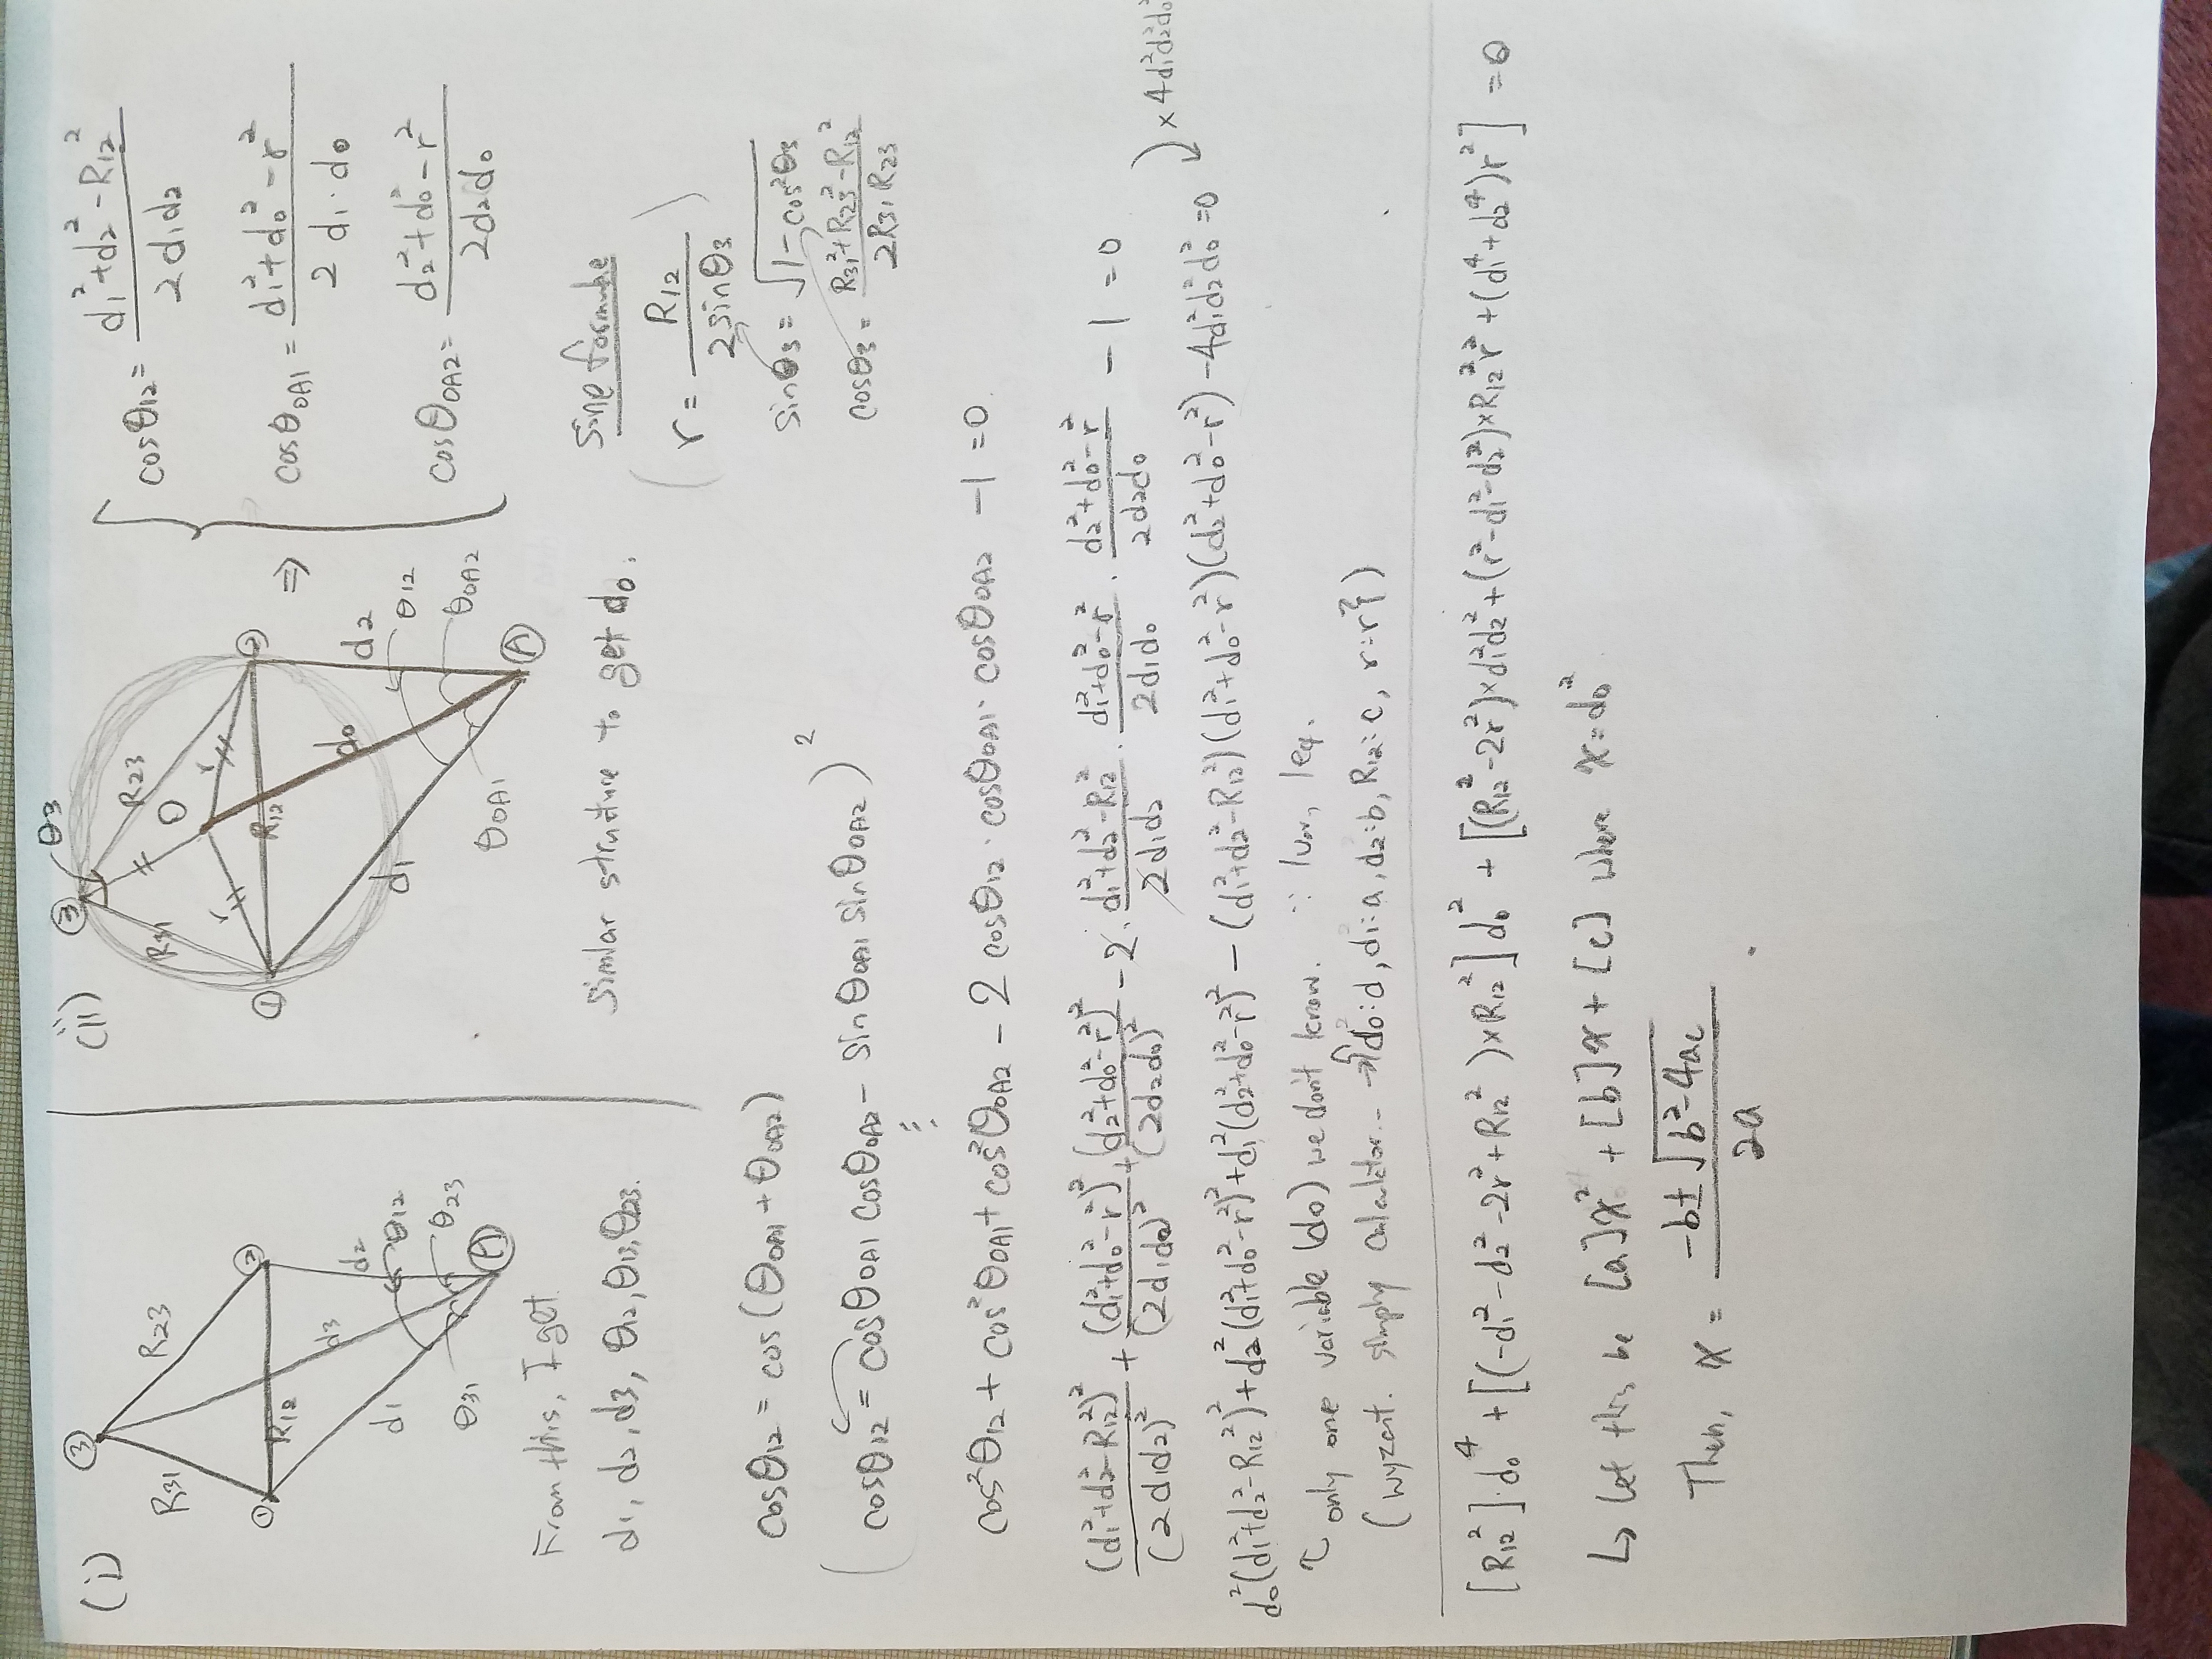 (i)
③
R31
R23
①
②
R12
d3
d1
d2
θ12
θ31
θ23
Ⓐ
From this, I get
d1, d2, d3, θ12, θ13, θ23.
(ii)
③
θ3
R31
R23
O
r
r
①
②
R12
d0
d1
d2
θ12
θOA1
θOA2
Ⓐ
Similar structure to get d0.
⇒ { cosθ12 = (d1² + d2² - R12²) / 2d1d2
cosθOA1 = (d1² + d0² - r²) / 2 d1·d0
cosθOA2 = (d2² + d0² - r²) / 2d2d0
Sine formulae
( r = R12 / 2sinθ3 )
sinθ3 = √(1 - cos²θ3)
cosθ3 = (R31² + R23² - R12²) / 2R31 R23
cosθ12 = cos(θOA1 + θOA2)
( cosθ12 = cosθOA1 cosθOA2 - sinθOA1 sinθOA2 )²
⋮
cos²θ12 + cos²θOA1 + cos²θOA2 - 2 cosθ12 · cosθOA1 · cosθOA2 - 1 = 0
(d1²+d2²-R12²)² / (2d1d2)² + (d1²+d0²-r²)² / (2d1d0)² + (d2²+d0²-r²)² / (2d2d0)² - 2 · (d1²+d2²-R12²) / 2d1d2 · (d1²+d0²-r²) / 2d1d0 · (d2²+d0²-r²) / 2d2d0 - 1 = 0
× 4d1²d2²d0²
d0²(d1²+d2²-R12²)² + d2²(d1²+d0²-r²)² + d1²(d2²+d0²-r²)² - (d1²+d2²-R12²)(d1²+d0²-r²)(d2²+d0²-r²) - 4d1²d2²d0² = 0
only one variable (d0) we don't know. ∵ 1var, 1eq.
(wyzant. simply calculator.. → {d0:d, d1:a, d2:b, R12:c, r:r})
[R12²]·d0⁴ + [(-d1²-d2²-2r²+R12²)×R12²] d0² + [(R12²-2r²)×d1²d2² + (r²-d1²-d2²)×R12²r² + (d1⁴+d2⁴)r²] = 0
↳ Let this be [a]x² + [b]x + [c] where x = d0²
Then, x = (-b ± √(b²-4ac)) / 2a .